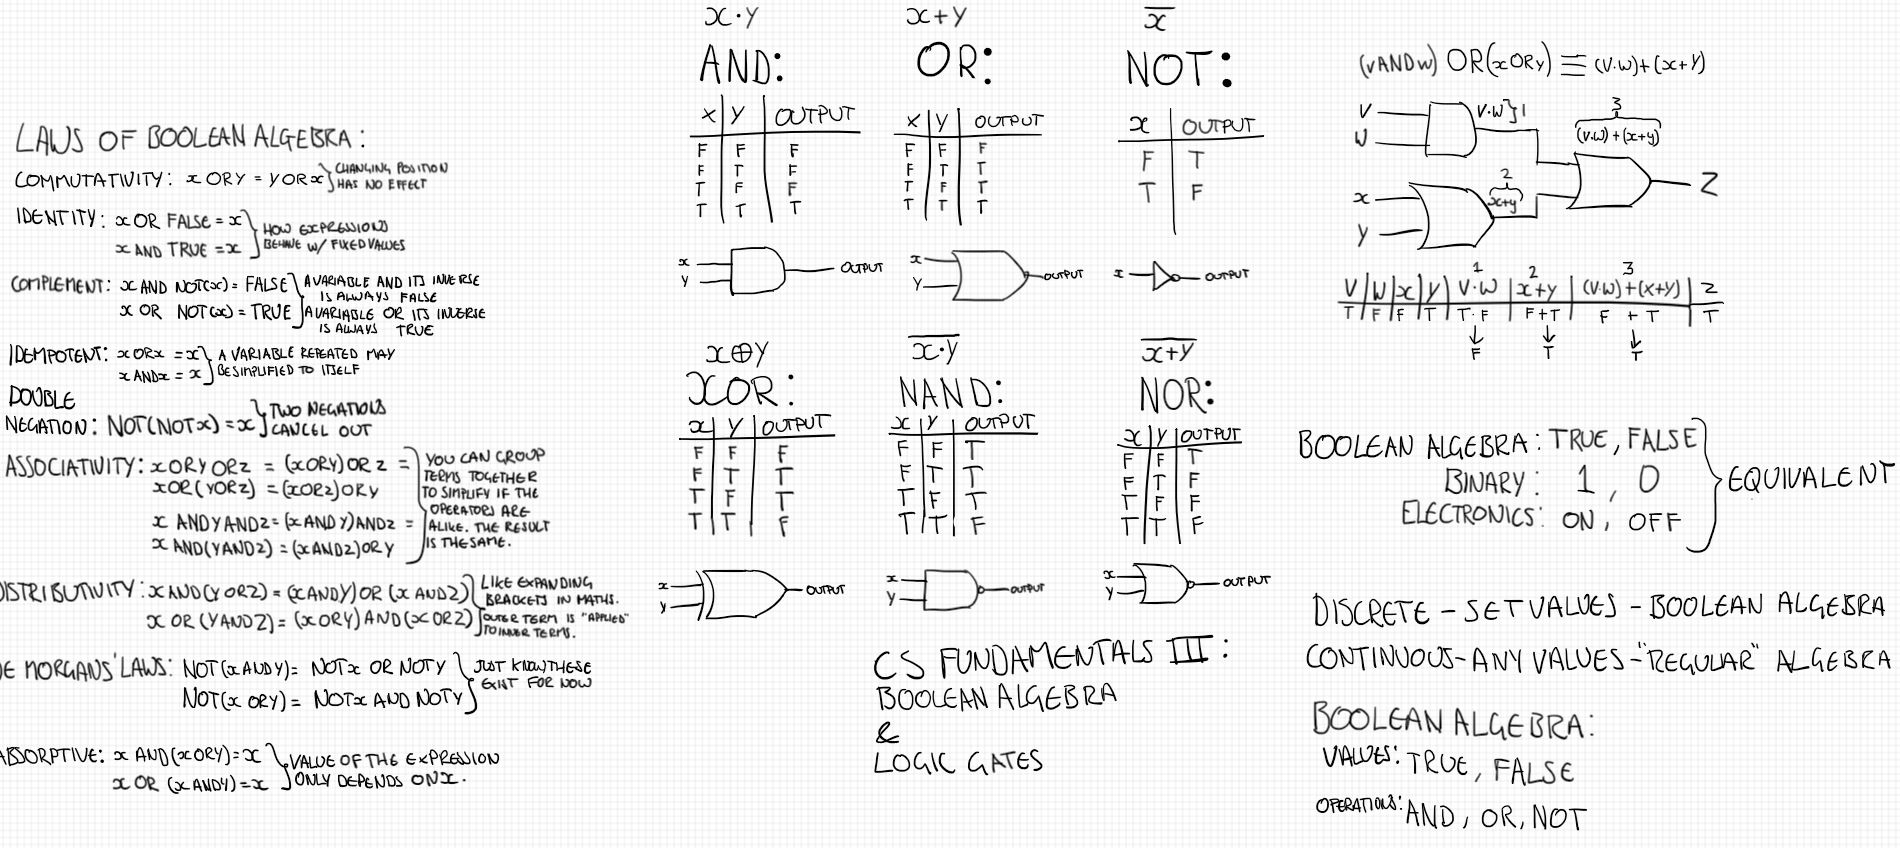 LAWS OF BOOLEAN ALGEBRA:
COMMUTATIVITY: x OR Y = Y OR x } CHANGING POSITION
HAS NO EFFECT
IDENTITY: x OR FALSE = x } HOW EXPRESSIONS
x AND TRUE = x } BEHAVE W/ FIXED VALUES
COMPLEMENT: x AND NOT(x) = FALSE } A VARIABLE AND ITS INVERSE
IS ALWAYS FALSE
x OR NOT(x) = TRUE } A VARIABLE OR ITS INVERSE
IS ALWAYS TRUE
IDEMPOTENT: x OR x = x } A VARIABLE REPEATED MAY
x AND x = x } BE SIMPLIFIED TO ITSELF
DOUBLE
NEGATION: NOT(NOT x) = x } TWO NEGATIONS
CANCEL OUT
ASSOCIATIVITY: x OR Y OR Z = (x OR Y) OR Z =
x OR (Y OR Z) = (x OR Z) OR Y
x AND Y AND Z = (x AND Y) AND Z =
x AND (Y AND Z) = (x AND Z) OR Y
YOU CAN GROUP
TERMS TOGETHER
TO SIMPLIFY IF THE
OPERATORS ARE
ALIKE. THE RESULT
IS THE SAME.
DISTRIBUTIVITY: x AND (Y OR Z) = (x AND Y) OR (x AND Z)
x OR (Y AND Z) = (x OR Y) AND (x OR Z)
LIKE EXPANDING
BRACKETS IN MATHS.
OUTER TERM IS "APPLIED"
TO INNER TERMS.
DE MORGANS' LAWS: NOT(x AND Y) = NOT x OR NOT Y
NOT(x OR Y) = NOT x AND NOT Y
JUST KNOW THESE
EXIST FOR NOW
ABSORPTIVE: x AND (x OR Y) = x
x OR (x AND Y) = x
VALUE OF THE EXPRESSION
ONLY DEPENDS ON x.
x·Y
AND:
X Y OUTPUT
F F F
F T F
T F F
T T T
x
Y
OUTPUT
x+Y
OR:
X Y OUTPUT
F F F
F T T
T F T
T T T
x
Y
OUTPUT
x̅
NOT:
x OUTPUT
F T
T F
x OUTPUT
x⊕Y
XOR:
x Y OUTPUT
F F F
F T T
T F T
T T F
x
Y
OUTPUT
x·Y
NAND:
x Y OUTPUT
F F T
F T T
T F T
T T F
x
Y
OUTPUT
x+Y
NOR:
x Y OUTPUT
F F T
F T F
T F F
T T F
x
Y
OUTPUT
CS FUNDAMENTALS III:
BOOLEAN ALGEBRA
&
LOGIC GATES
(V AND W) OR (x OR Y) ≡ (V·W)+(x+Y)
V
W
V·W } 1
3
(V·W)+(x+Y)
Z
x
Y
2
x+y
1 2 3
V W x Y V·W x+y (V·W)+(x+Y) Z
T F F T T·F F+T F + T T
F T T
BOOLEAN ALGEBRA: TRUE, FALSE
BINARY: 1, 0
ELECTRONICS: ON, OFF
EQUIVALENT
DISCRETE - SET VALUES - BOOLEAN ALGEBRA
CONTINUOUS - ANY VALUES - "REGULAR" ALGEBRA
BOOLEAN ALGEBRA:
VALUES: TRUE, FALSE
OPERATIONS: AND, OR, NOT